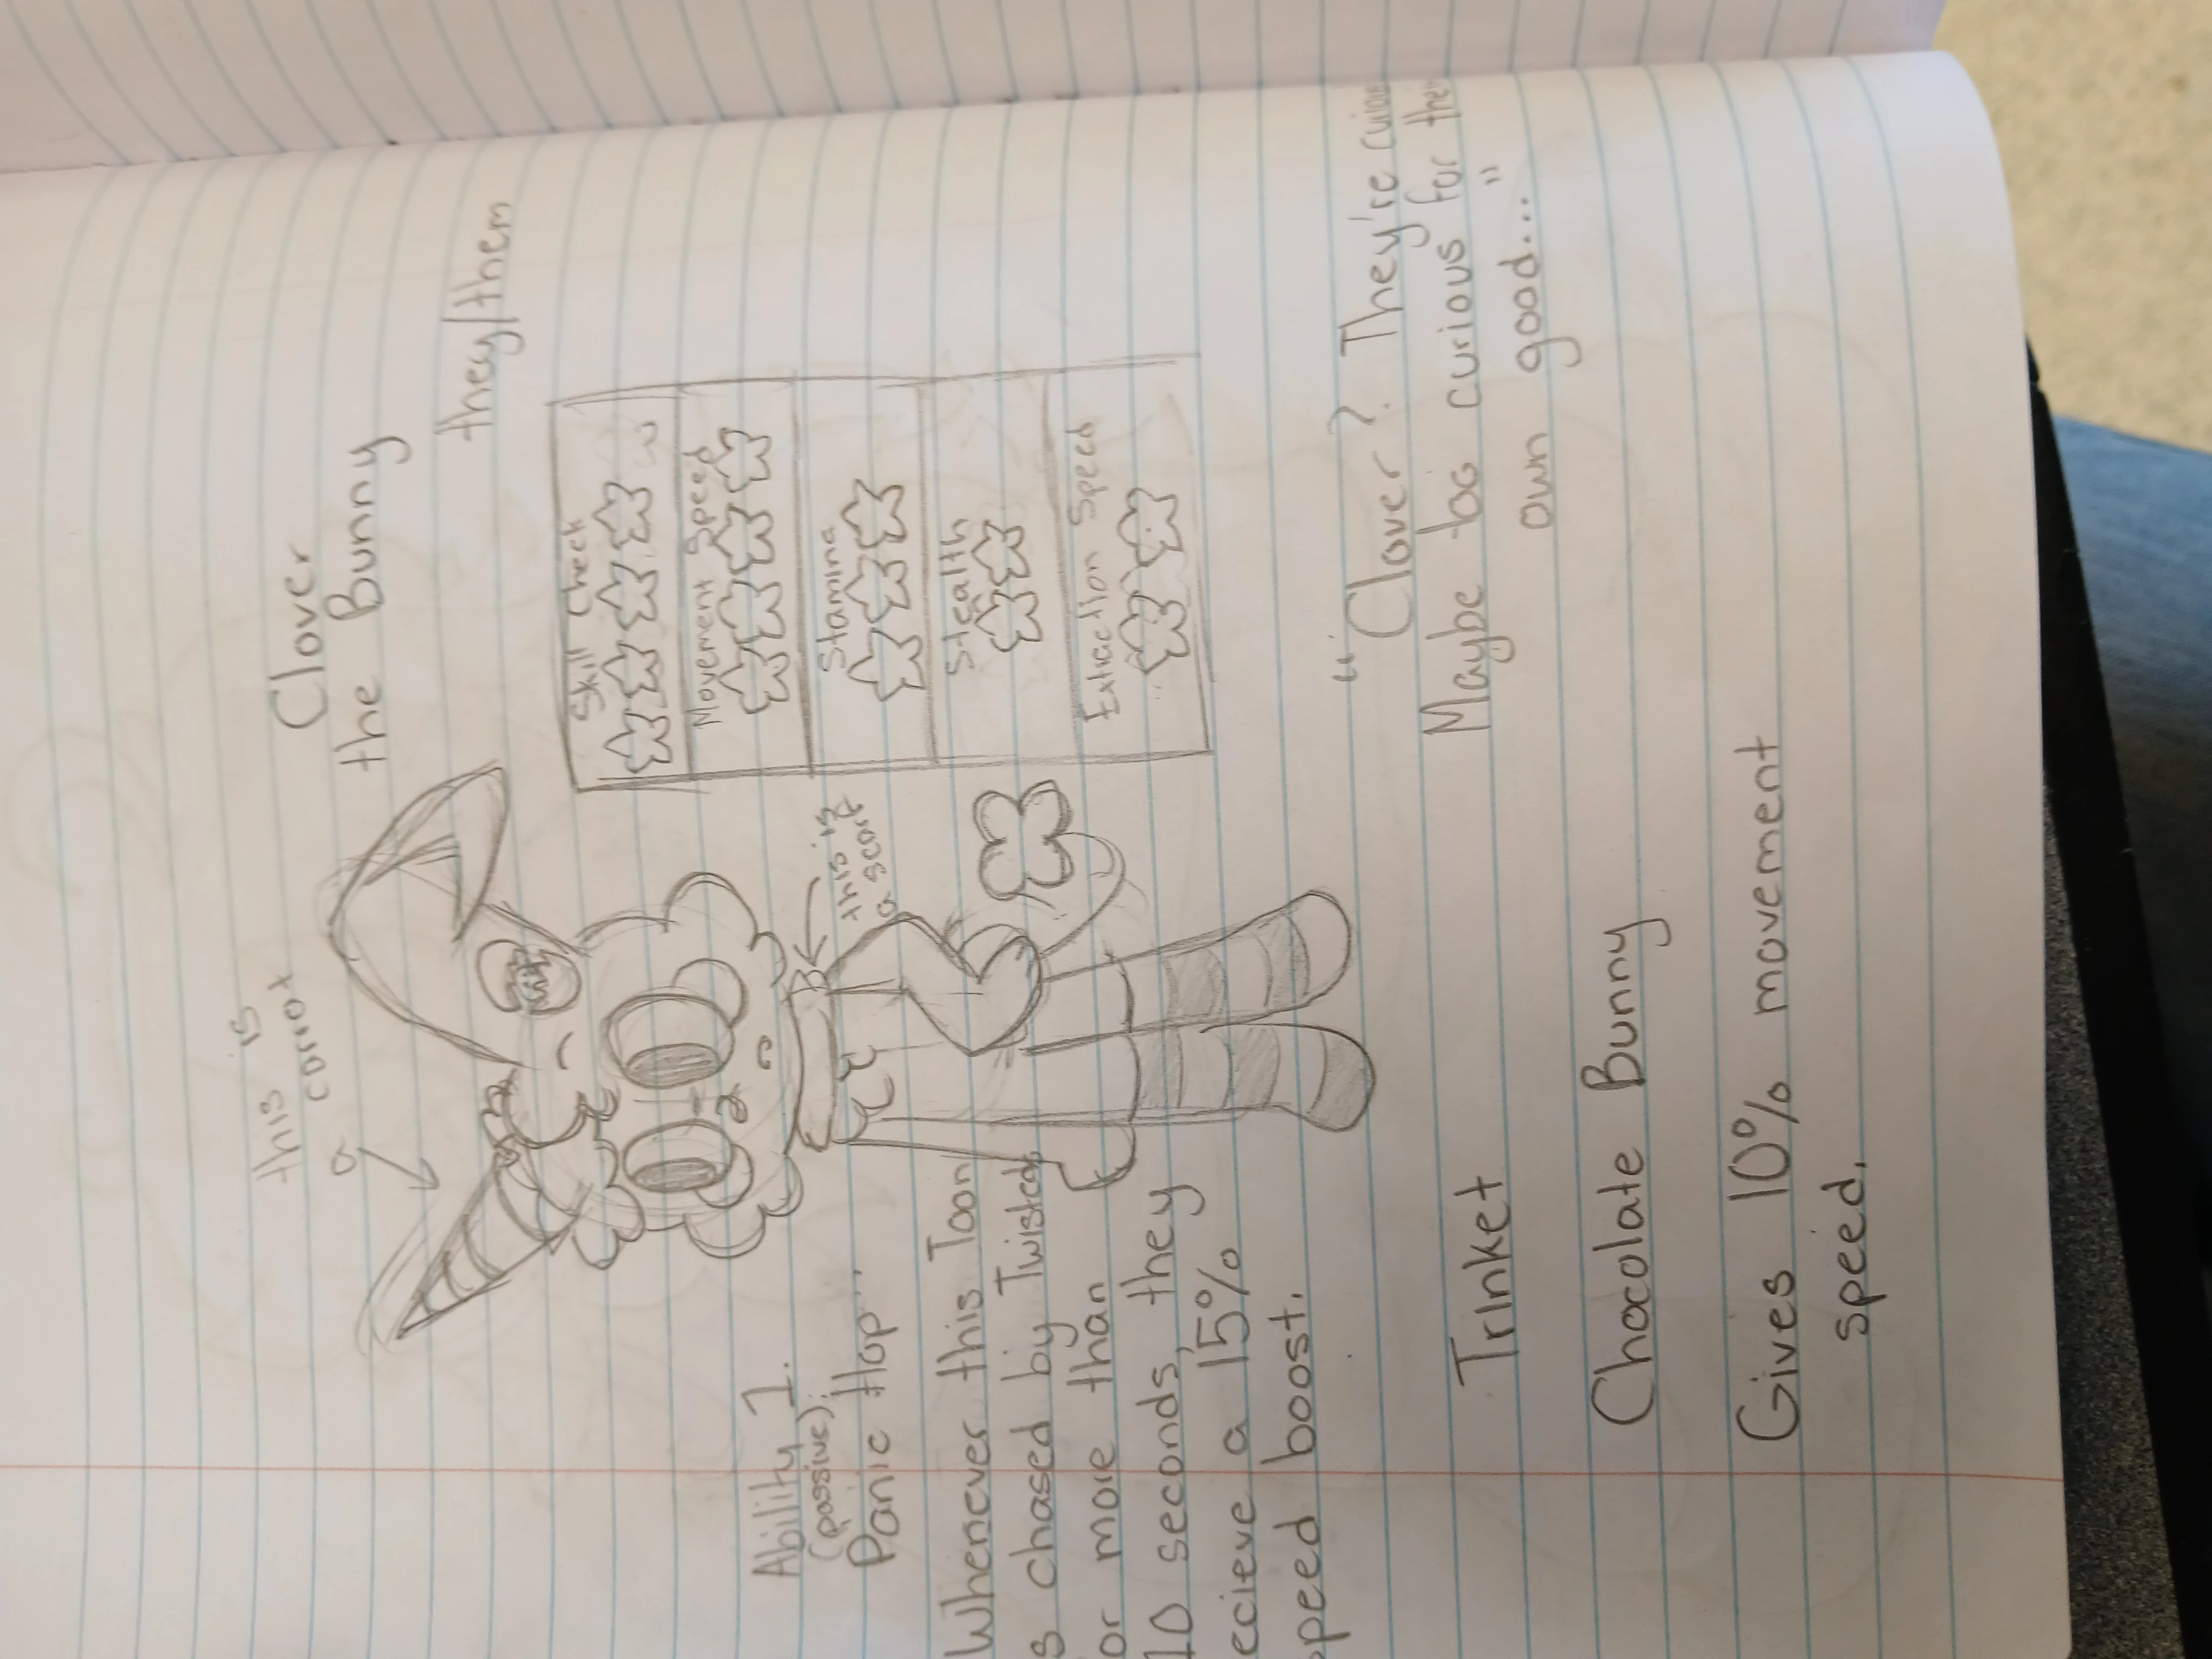 Clover
the Bunny
they/them
this is
a carrot
Skill Check
Movement Speed
Stamina
Stealth
Extraction Speed
this is
a scarf
Ability 1.
(passive):
Panic Hop"
Whenever this Toon
s chased by Twisteds
or more than
10 seconds, they
ecieve a 15%
peed boost.
"Clover? They're
Maybe too curious for their
own good..."
Trinket
Chocolate Bunny
Gives 10% movement
speed.